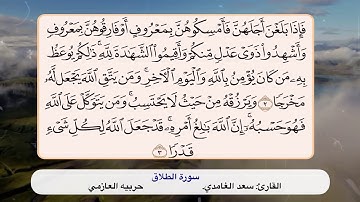 فَإِذَا بَلَغْنَ أَجَلَهُنَّ فَأَمْسِكُوهُنَّ بِمَعْرُوفٍ أَوْ فَارِقُوهُنَّ بِمَعْرُوفٍ
وَأَشْهِدُوا۟ ذَوَىْ عَدْلٍ مِّنكُمْ وَأَقِيمُوا۟ ٱلشَّهَـٰدَةَ لِلَّهِ ذَٰلِكُمْ يُوعَظُ
بِهِۦ مَن كَانَ يُؤْمِنُ بِٱللَّهِ وَٱلْيَوْمِ ٱلْـَٔاخِرِ وَمَن يَتَّقِ ٱللَّهَ يَجْعَل لَّهُۥ
مَخْرَجًا ٢ وَيَرْزُقْهُ مِنْ حَيْثُ لَا يَحْتَسِبُ وَمَن يَتَوَكَّلْ عَلَى ٱللَّهِ
فَهُوَ حَسْبُهُۥٓ إِنَّ ٱللَّهَ بَـٰلِغُ أَمْرِهِۦ قَدْ جَعَلَ ٱللَّهُ لِكُلِّ شَىْءٍ
قَدْرًا ٣
سورة الطلاق
القارئ: سعد الغامدي. حربيه العازمي